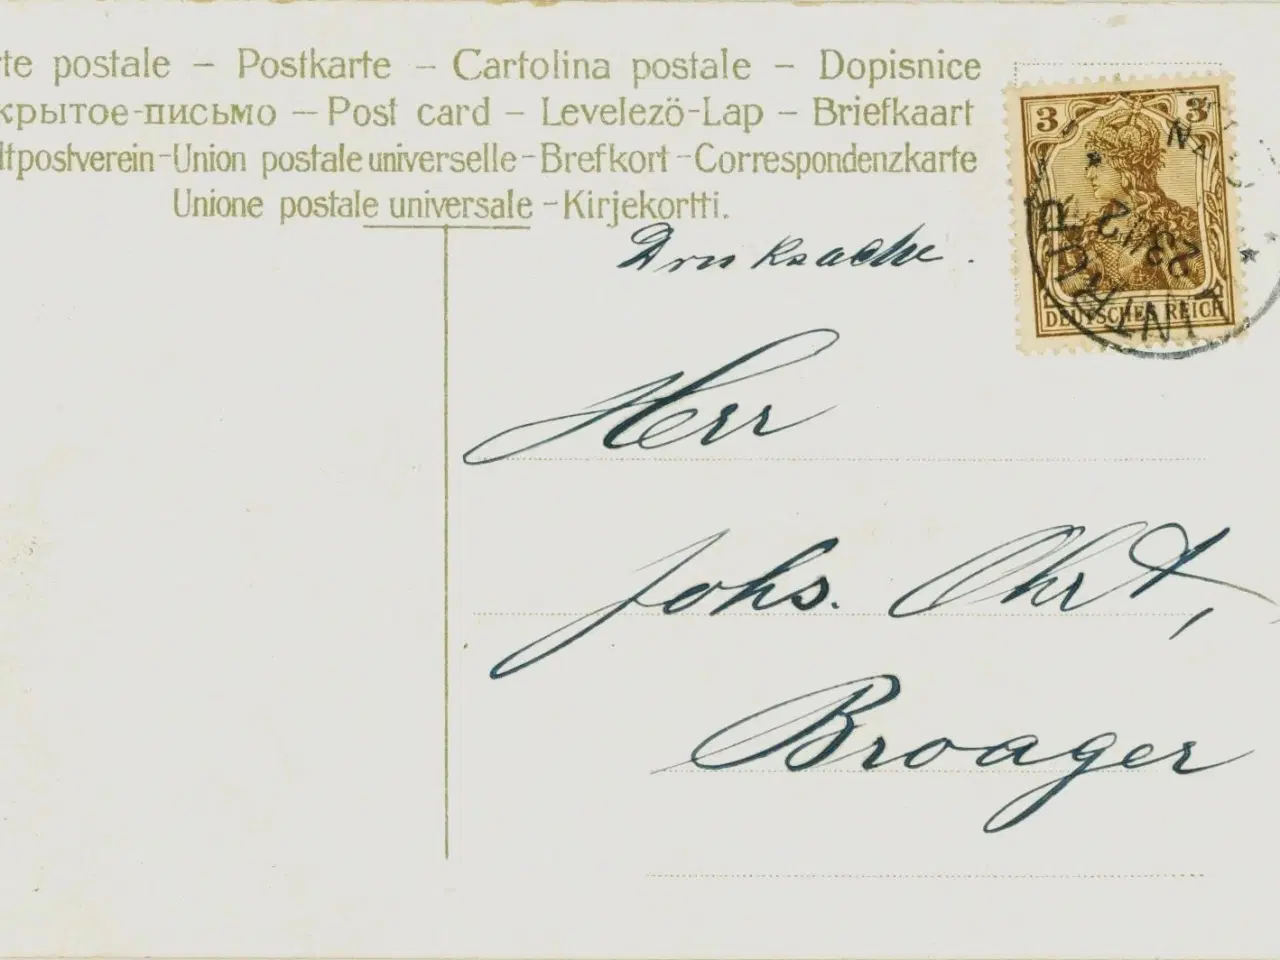 te postale – Postkarte – Cartolina postale – Dopisnice
крытое-письмо – Post card – Levelezö-Lap – Briefkaart
ltpostverein - Union postale universelle - Brefkort - Correspondenzkarte
Unione postale universale - Kirjekortti.
Drucksache.
3 3
DEUTSCHES REICH
Herr
Johs. Ohrt,
Broager